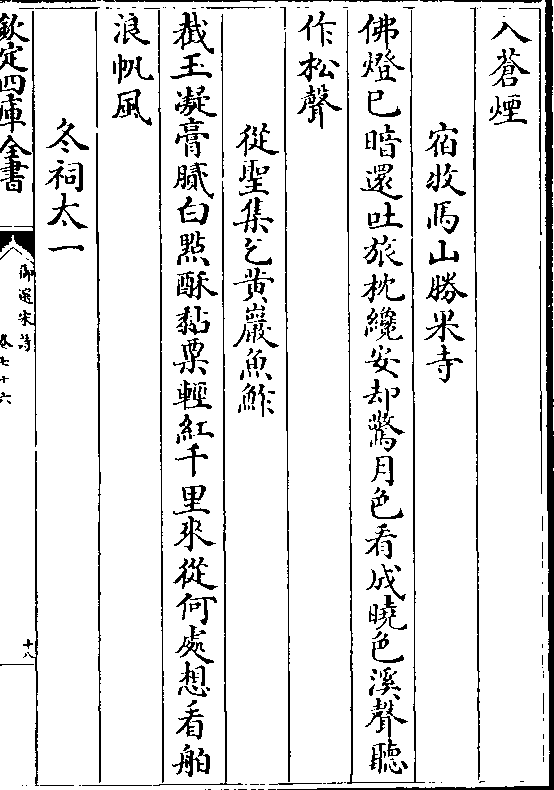 入蒼煙
宿牧馬山勝果寺
佛燈已暗還吐旅枕纔安却驚月色看成曉色溪聲聽
作松聲
從聖集乞黄巖魚鮓
截玉凝膏膩白點酥黏粟輕紅千里來從何處想看舶
浪帆風
冬祠太一
欽定四庫全書
御選宋詩
卷七十六
十八